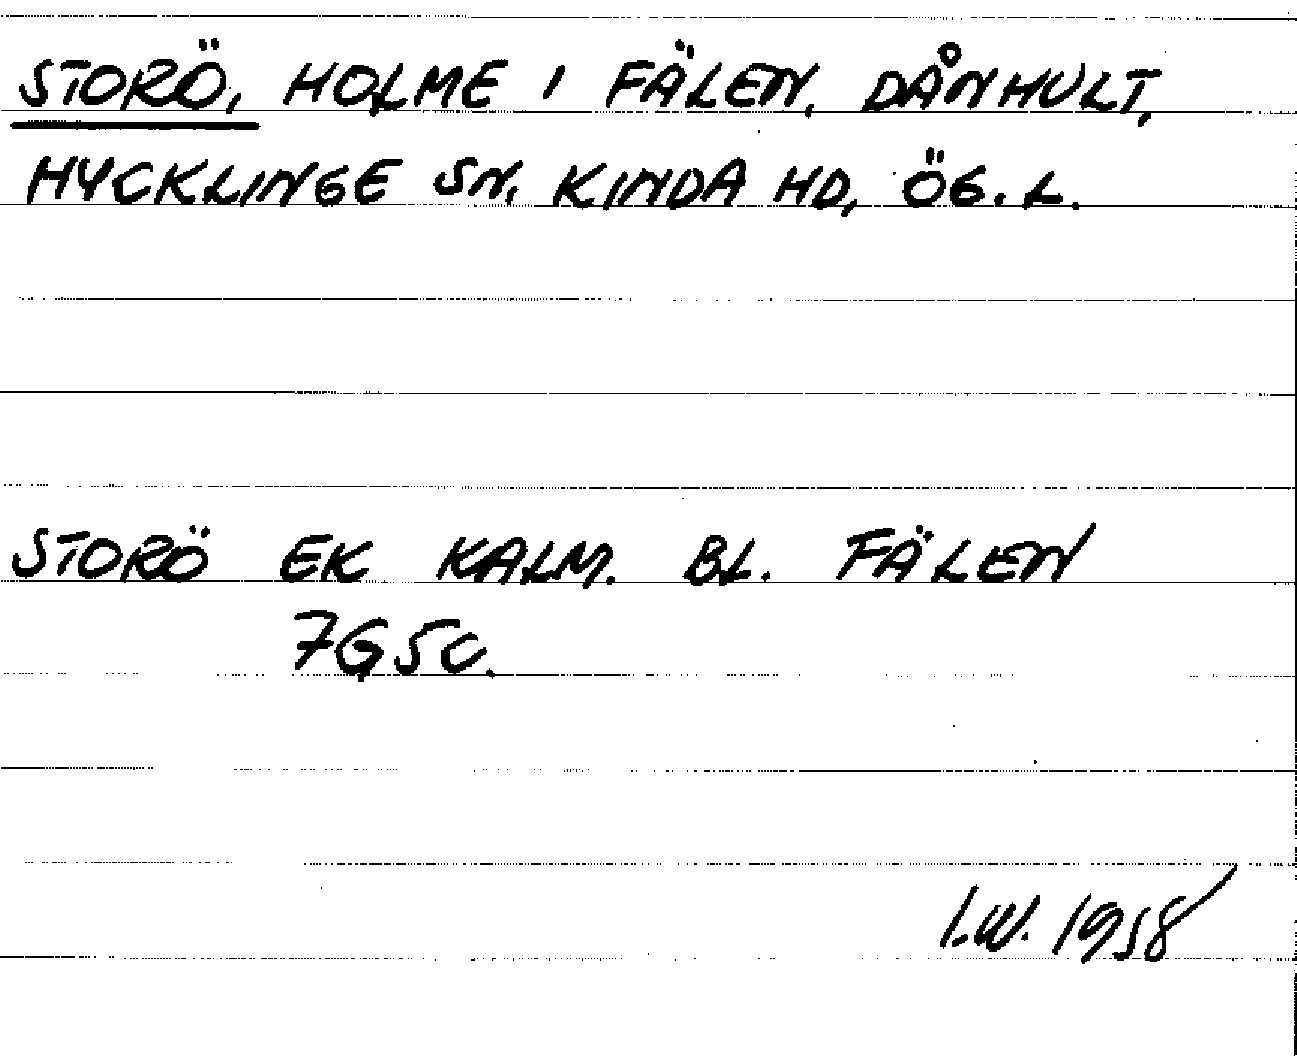 STORÖ, HOLME I FÄLEN, DÅNHULT,
HYCKLINGE SN, KINDA HD, ÖG. L.
STORÖ EK KALM. BL. FÄLEN
7G5C.
I.W. 1958